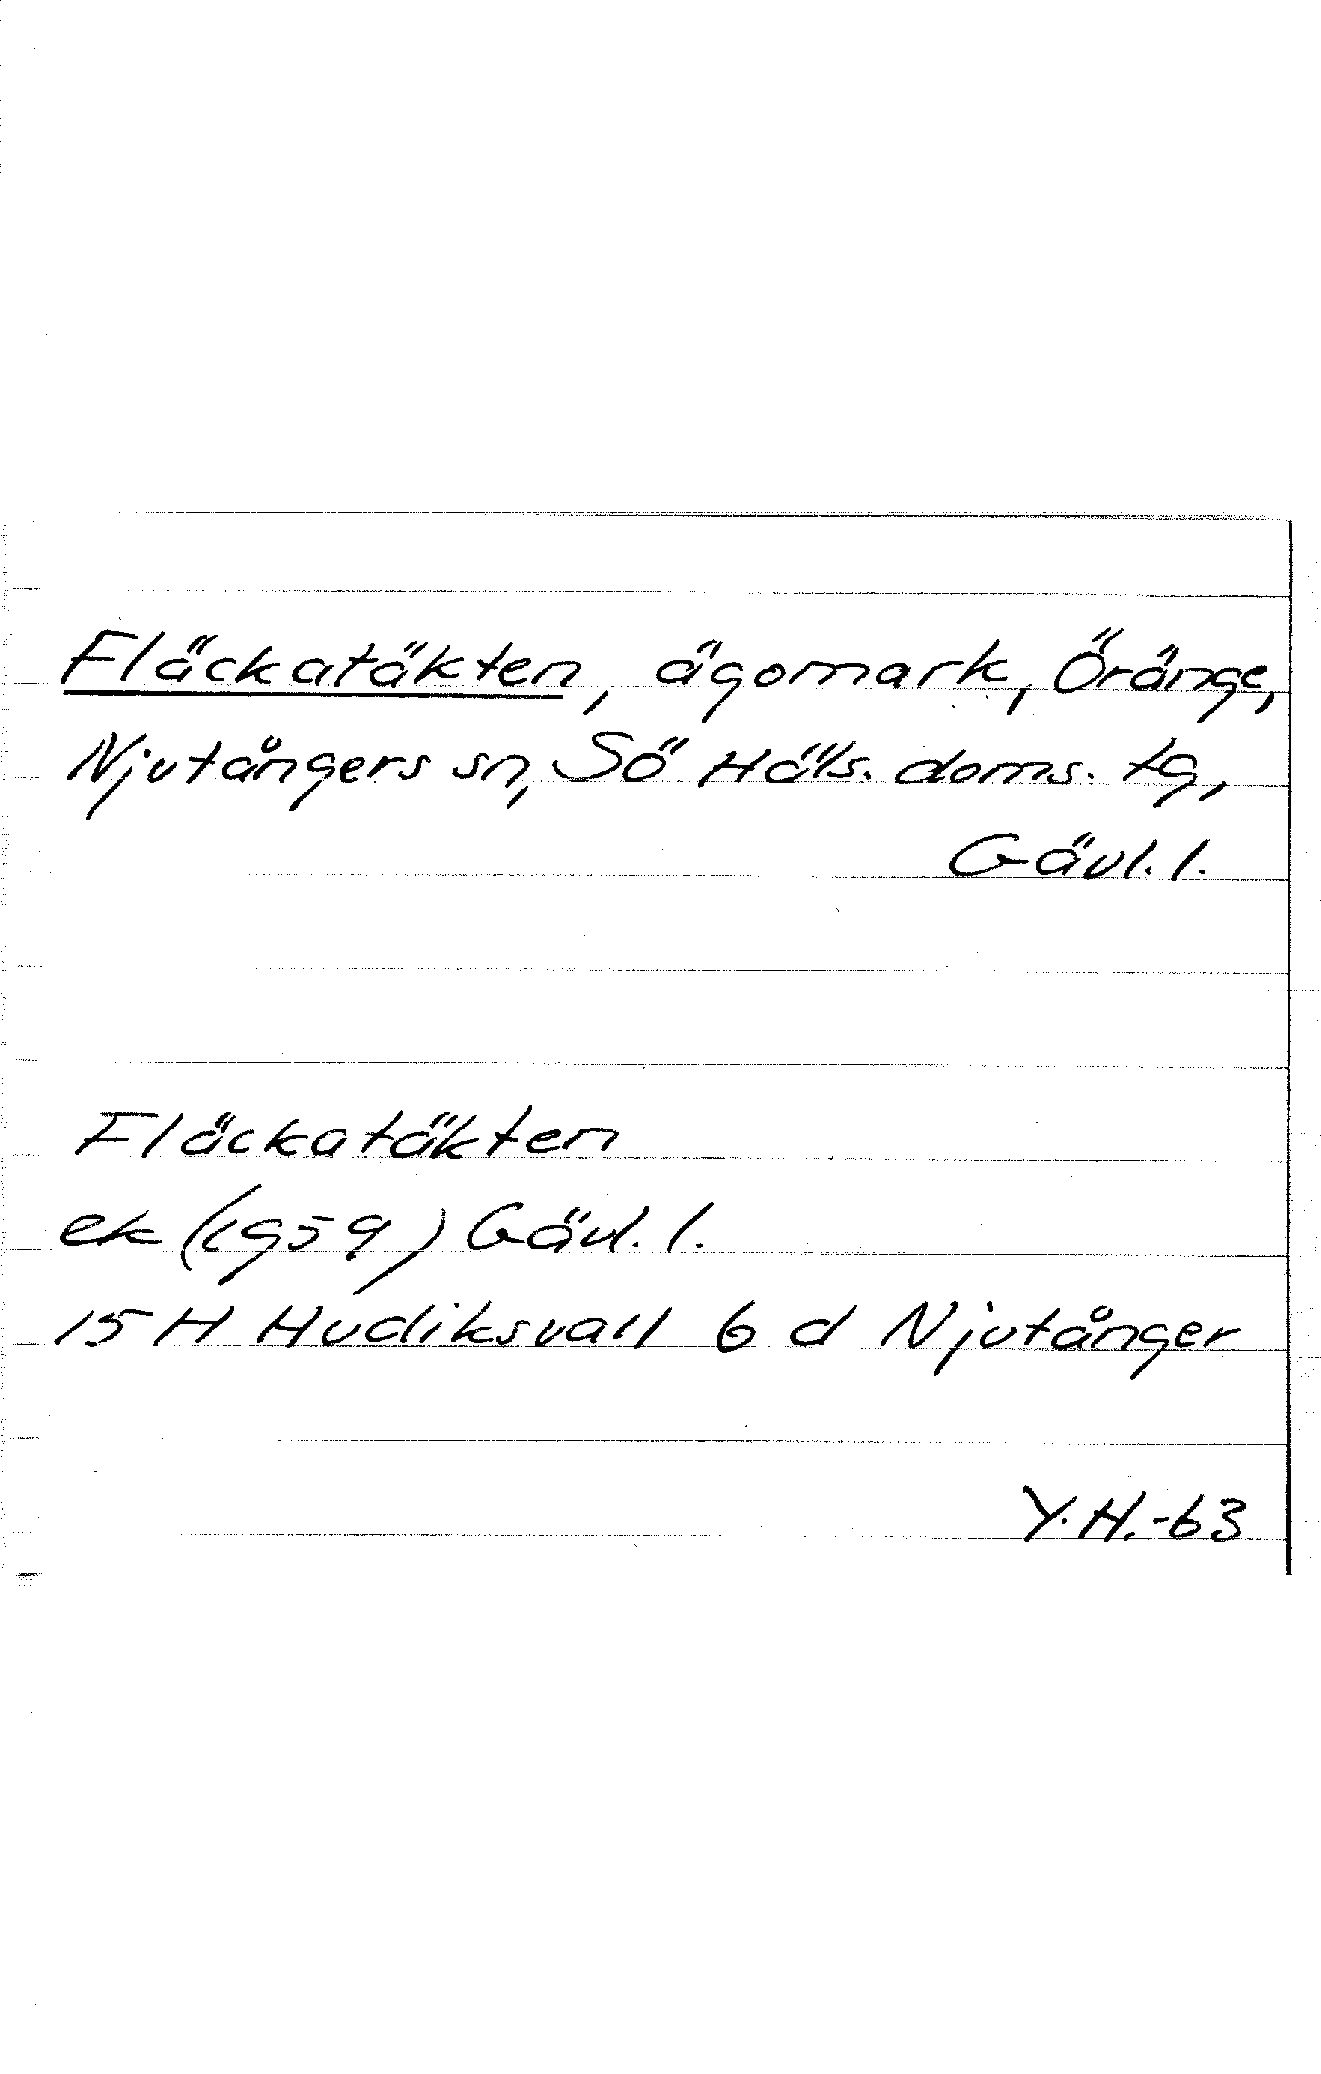 Fläckatäkten, ägomark, Öränge,
Njutångers sn, Sö Häls. doms. tg,
Gävl. l.
Fläckatäkten
ek (1959) Gävl. l.
15 H Hudiksvall 6 d Njutånger
Y. H. -63